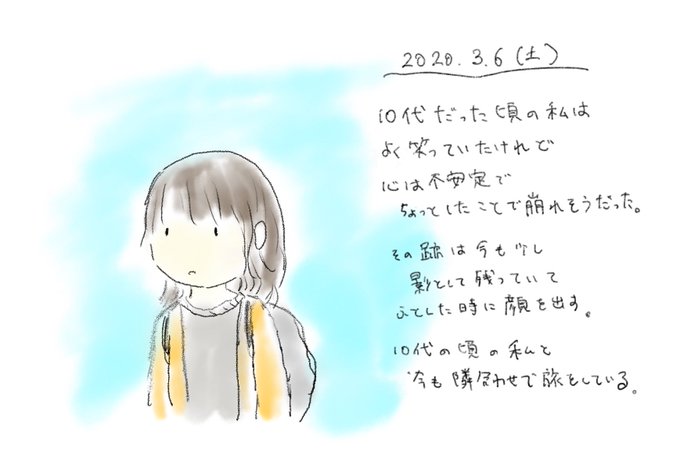 2020.3.6(土)
10代だった頃の私は
よく笑っていたけれど
心は不安定で
ちょっとしたことで崩れそうだった。
その跡は今も少し
影として残っていて
ふとした時に顔を出す。
10代の頃の私と
今も隣合わせで旅をしている。